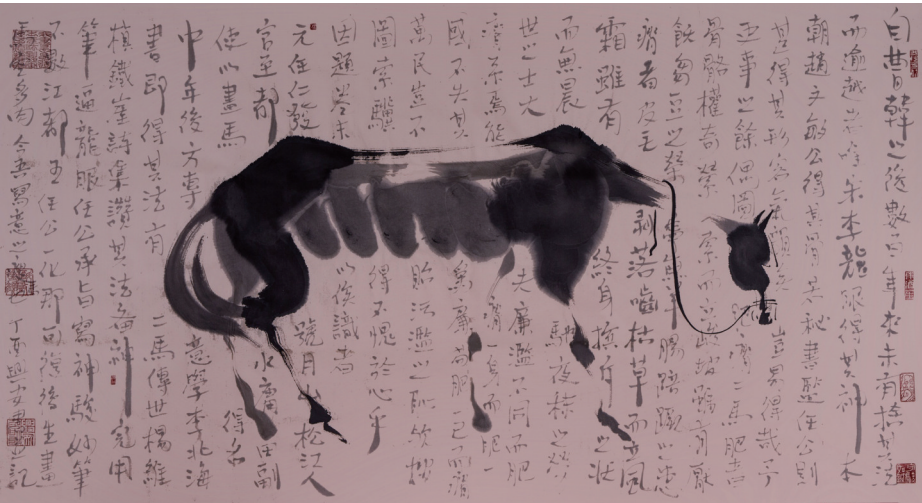 自曹韓之後數百年來未有
而逾越 唯宋李龍眠得其神 本
朝趙文敏公得其骨若秘書監任公則
甚得其形容氣韻矣豈易得哉予
王事之餘偶圖肥瘠二馬肥者
骨骼權奇縈一索而立峻坡雖有厭
飫芻豆之榮寧無羊腸踣蹶之患
瘠者皮毛剥落嚙枯草而立風
霜雖有終身擯斥之狀
而無晨馳夜秣之勞
世之士大夫廉濫不同而肥
瘠亦焉能瘠一身而肥一
國不失其為廉苟肥一己而瘠
萬民豈不貽污濫之恥歟按
圖索驥得不愧於心乎
因題卷末以俟識者
元任仁發號月山松江人
官至都水庸田副
使以畫馬得名
中年後方專意學李北海
書即得其法有二馬傳世楊維
楨鐵崖詩集讚其法 神 用
筆逼龍眠任公承旨寫神駿妙筆
不數江都王任公一化那可得後生畫
馬空多肉今吾寫意 也丁亥 記